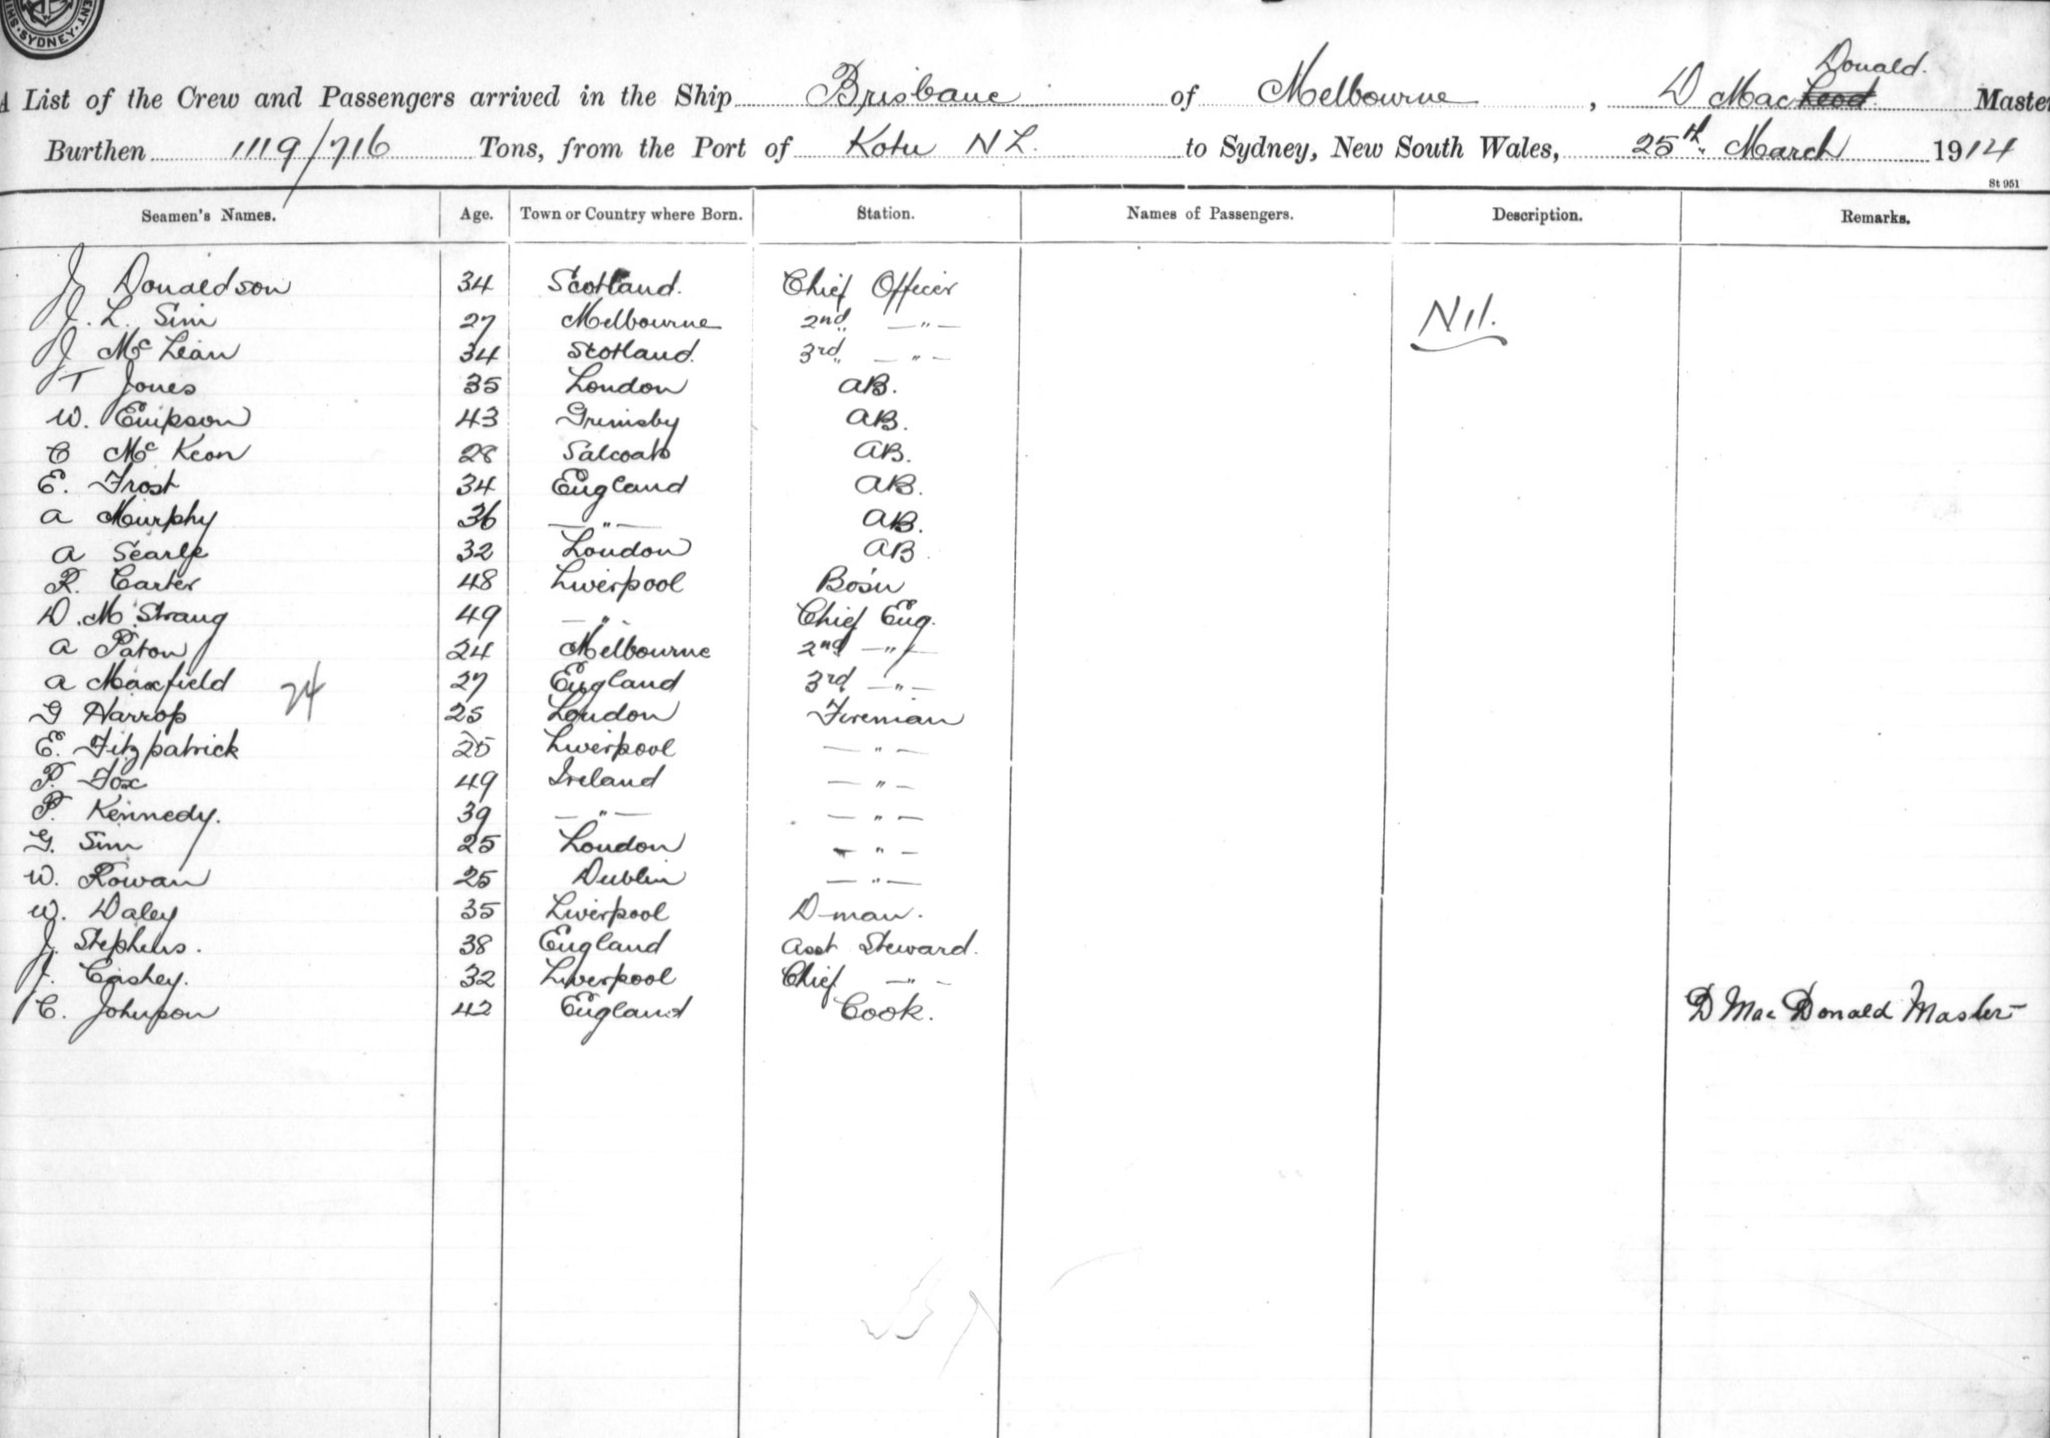 SYDNEY
Donald.
A List of the Crew and Passengers arrived in the Ship Brisbane of Melbourne, D MacLeod Master
Burthen 1119/716 Tons, from the Port of Kotu N L. to Sydney, New South Wales, 25th March 1914
St 951
Seamen's Names. Age. Town or Country where Born. Station. Names of Passengers. Description. Remarks.
J Donaldson 34 Scotland. Chief Officer
J. L. Sim 27 Melbourne 2nd —"— Nil.
J McLean 34 Scotland. 3rd —"—
T Jones 35 London AB.
W. Empson 43 Grimsby AB.
C McKeon 28 Salcoats AB.
E. Frost 34 England AB.
A Murphy 36 —"— AB.
A Searle 32 London AB.
R. Carter 48 Liverpool Bo'sn
D. M. Strang 49 —"— Chief Eng.
A Paton 24 Melbourne 2nd —"—
A Maxfield 27 England 3rd —"—
24
G Harrop 25 London Fireman
E. Fitzpatrick 25 Liverpool —"—
P. Fox 49 Ireland —"—
P. Kennedy. 39 —"— —"—
G. Sim 25 London —"—
W. Rowan 25 Dublin —"—
W. Daley 35 Liverpool D-man.
J. Stephens. 38 England Asst Steward.
J. Cashey. 32 Liverpool Chief —"—
C. Johnson 42 England Cook. D MacDonald Master